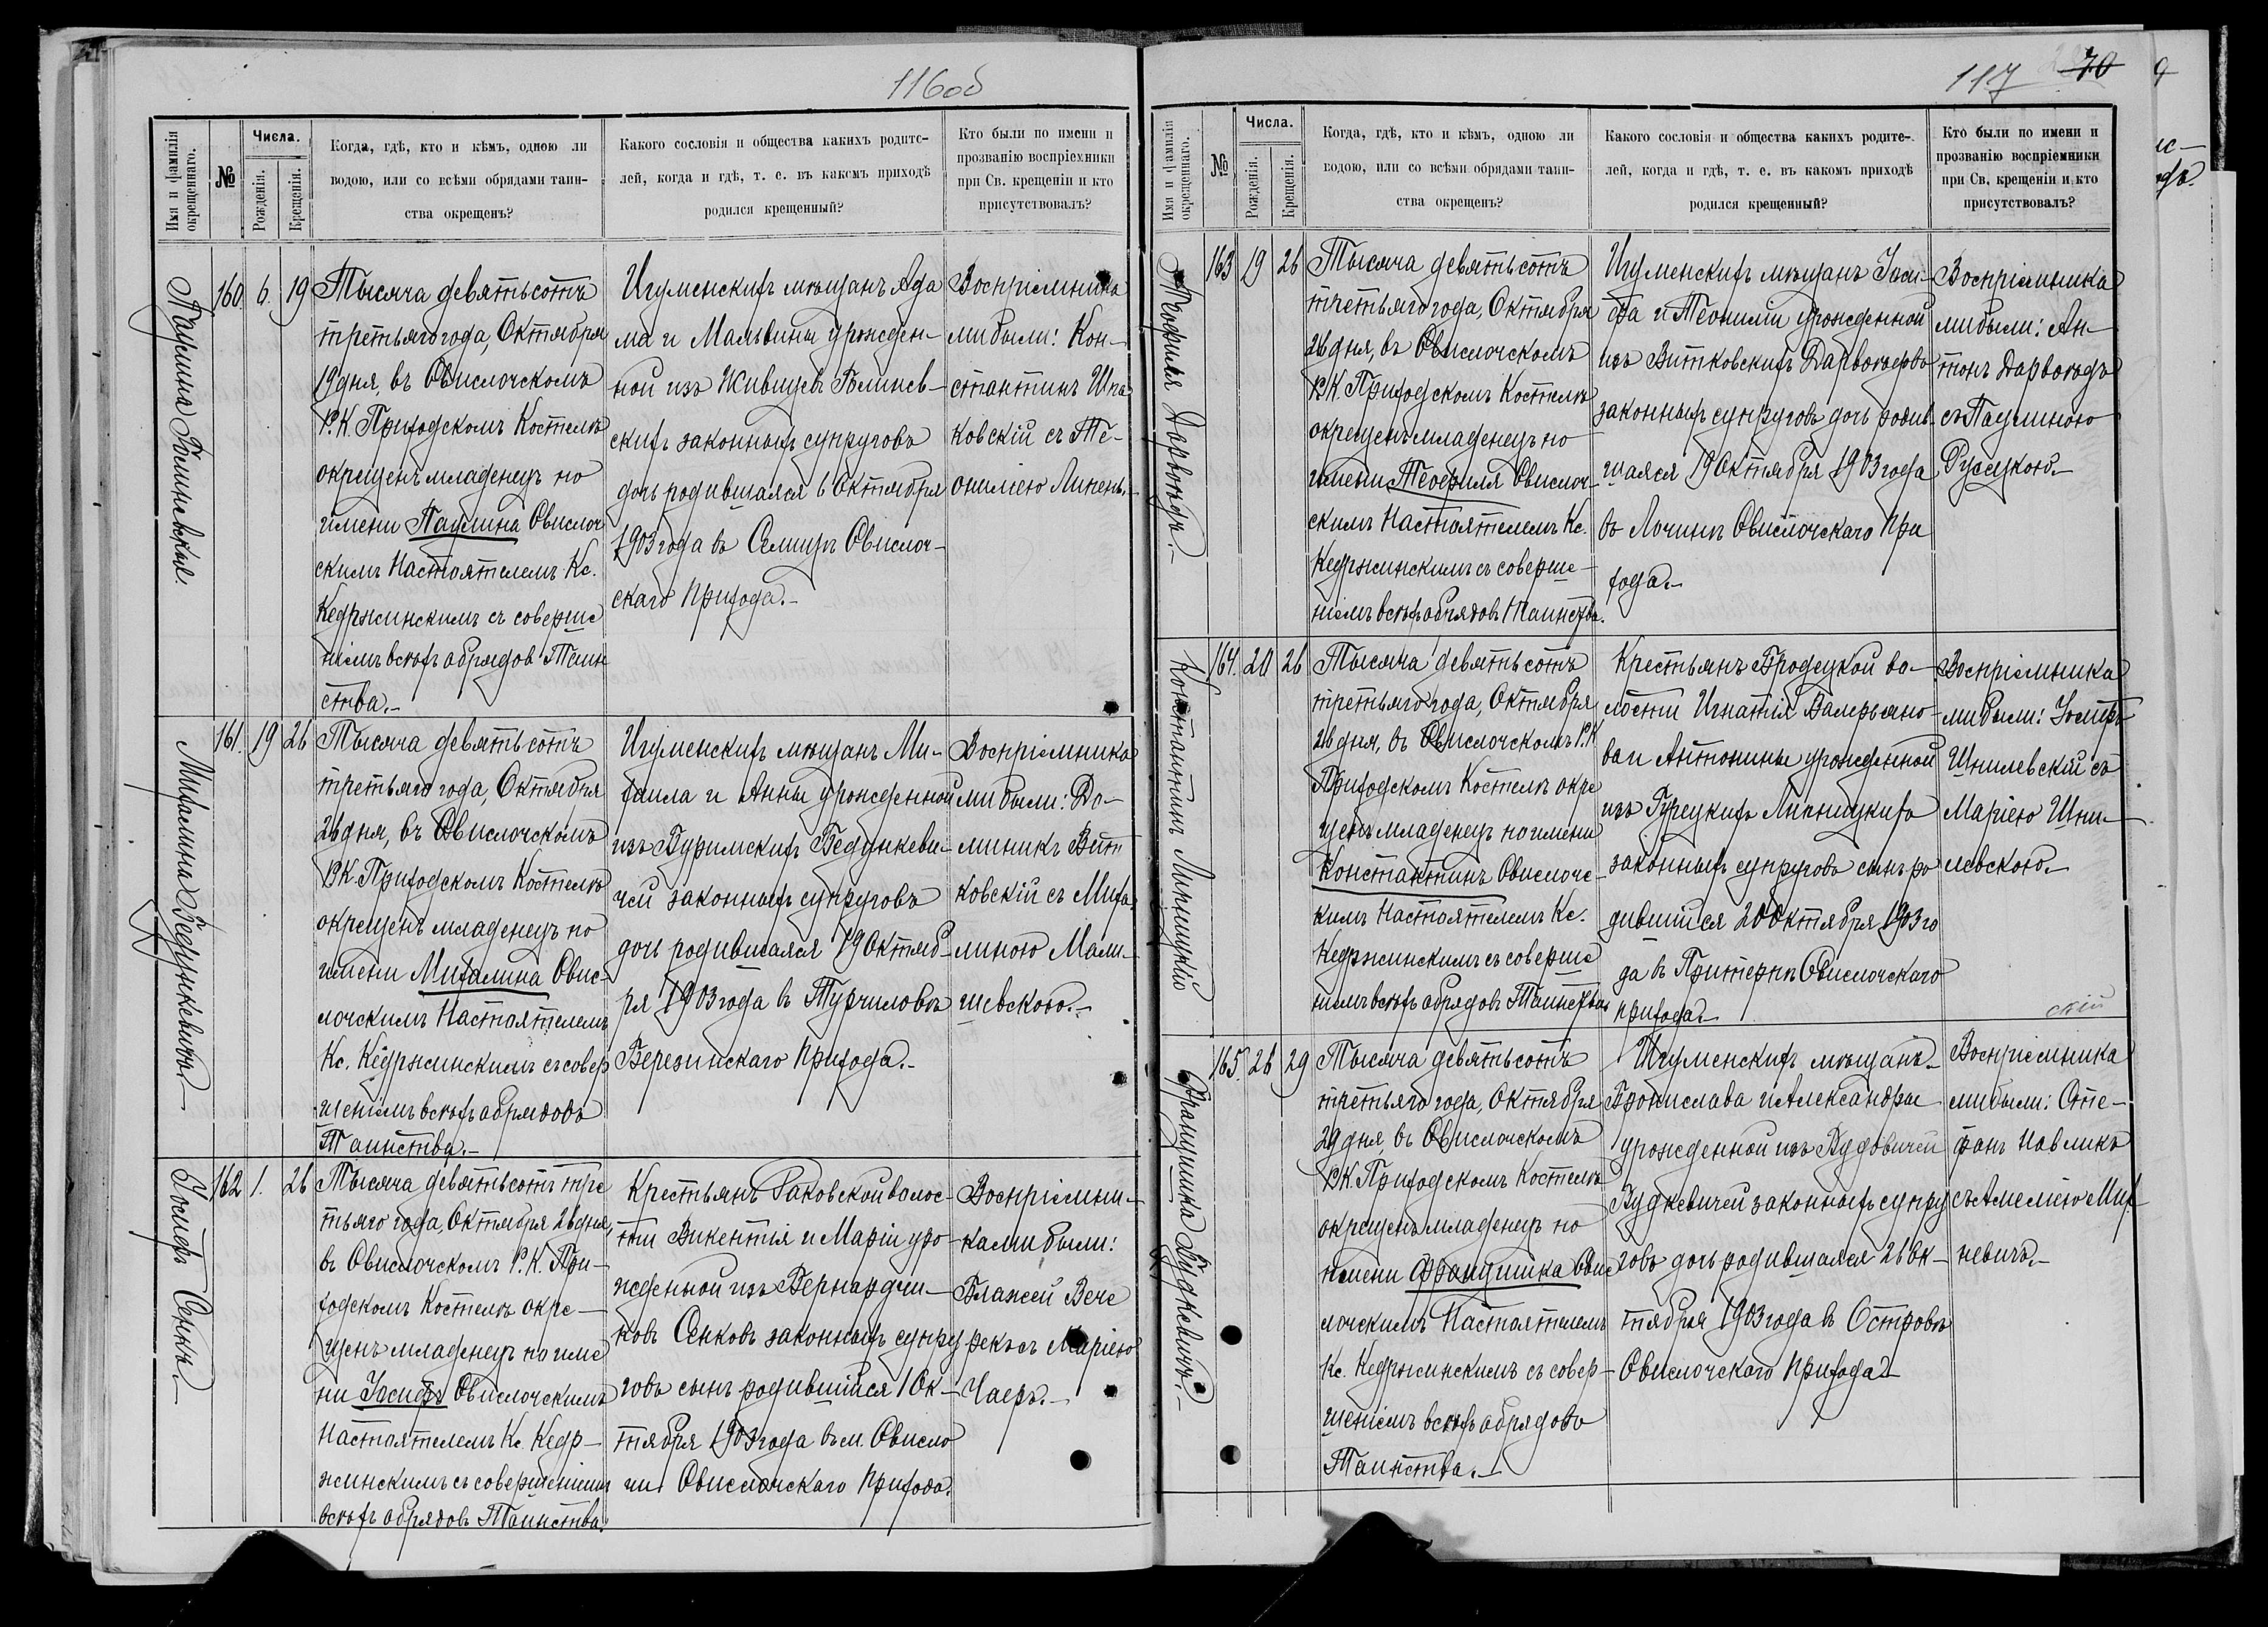 116об
Имя и фамилія окрещеннаго.
№
Числа.
Рожденія.
Крещенія.
Когда, гдѣ, кто и кѣмъ, одною ли
водою, или со всѣми обрядами таин-
ства окрещенъ?
Какого сословія и общества какихъ родите-
лей, когда и гдѣ, т. е. въ какомъ приходѣ
родился крещенный?
Кто были по имени и
прозванію воспріемники
при Св. крещеніи и кто
присутствовалъ?
Паулина Голиневская
160. 6. 19
Тысяча девятьсотъ
третьяго года, Октября
19 дня, въ Свислочскомъ
Р.К. Приходскомъ Костелѣ
окрещенъ младенецъ по
имени Паулина Свислоч
скимъ Настоятелемъ Кс.
Кедржинскимъ съ соверше
ніемъ всѣхъ обрядовъ Таин
ства.-
Игуменскихъ мѣщанъ Ада
ма и Мальвины урожден-
ной изъ
скихъ законныхъ супруговъ
дочь родившаяся 6 Октября
1903 года въ Селицѣ Свислоч-
скаго Прихода.-
Воспріемника
ми были: Кон-
стантинъ
ковскій съ Те-
офиліею
161. 19 26
Михалина Бедункевичъ.
Тысяча девятьсотъ
третьяго года, Октября
26 дня, въ Свислочскомъ
Р.К. Приходскомъ Костелѣ
окрещенъ младенецъ по
имени Михалина Свис-
лочскимъ Настоятелемъ
Кс. Кедржинскимъ съ совер
шеніемъ всѣхъ обрядовъ
Таинства.-
Игуменскихъ мѣщанъ Ми-
хаила и Анны урожденной
изъ Буримскихъ Бедункеви-
чей законныхъ супруговъ
дочь родившаяся 19 Октяб-
ря 1903 года въ Турчиловкѣ
Березинскаго Прихода.-
Воспріемника
ми были: До-
миникъ Вит
ковскій съ Миха
линою Мали-
шевскою.-
Іосифъ Сенкъ.-
162 1. 26
Тысяча девятьсотъ тре
тьяго года, Октября 26 дня,
въ Свислочскомъ Р. К. При-
ходскомъ Костелѣ окре-
щенъ младенецъ по име
ни Іосифъ Свислочскимъ
Настоятелемъ Кс. Кедр-
жинскимъ съ совершеніемъ
всѣхъ обрядовъ Таинства.
Крестьянъ Раковской волос-
ти Викентія и Маріи уро-
жденной изъ Бернардчи-
ковъ Сенковъ законныхъ супру
говъ сынъ родившійся 1 Ок-
тября 1903 года въ м. Свисло
чи Свислочскаго Прихода.
Воспріемни-
ками были:
Блажей Вече
рекъ съ Маріею
Чаеръ.-
117 70
Имя и фамилія окрещеннаго.
№
Числа.
Рожденія.
Крещенія.
Когда, гдѣ, кто и кѣмъ, одною ли
водою, или со всѣми обрядами таин-
ства окрещенъ?
Какого сословія и общества какихъ родите-
лей, когда и гдѣ, т. е. въ какомъ приходѣ
родился крещенный?
Кто были по имени и
прозванію воспріемники
при Св. крещеніи и кто
присутствовалъ?
Теофиля Дарвоѣдъ.-
163 19 26
Тысяча девятьсотъ
третьяго года, Октября
26 дня, въ Свислочскомъ
Р.К. Приходскомъ Костелѣ
окрещенъ младенецъ по
имени Теофиля Свислоч-
скимъ Настоятелемъ Кс.
Кедржинскимъ съ соверше-
ніемъ всѣхъ обрядовъ Таинства.
Игуменскихъ мѣщанъ Іоси-
фа и Теофиліи урожденной
изъ Витковскихъ Дарвоѣдовъ
законныхъ супруговъ дочь родив-
шаяся 19 Октября 1903 года
въ Лочинѣ Свислочскаго При
хода.-
Воспріемника
ми были: Ан-
тонъ Дарвоѣдъ
съ Паулиною
Русецкою.-
Константинъ Липницкій
164. 20 26
Тысяча девятьсотъ
третьяго года, Октября
26 дня, въ Свислочскомъ Р.К
Приходскомъ Костелѣ окре
щенъ младенецъ по имени
Константинъ Свислочс-
кимъ Настоятелемъ Кс.
Кедржинскимъ съ соверше
ніемъ всѣхъ обрядовъ Таинства
Крестьянъ Бродецкой во-
лости Игнатія Валерьяно-
ва и Антонины урожденной
изъ Гурецкихъ Липницкихъ
законныхъ супруговъ сынъ ро
дившійся 20 Октября 1903 го
да въ Притеркѣ Свислочскаго
прихода.-
Воспріемника
ми были: Іосифъ
Шпилевскій съ
Маріею Шпи-
левскою.-
скій
Францишка Будкевичъ.-
165. 26 29
Тысяча девятьсотъ
третьяго года, Октября
29 дня, въ Свислочскомъ
Р.К. Приходскомъ Костелѣ
окрещенъ младенецъ по
имени Францишка Свис
лочскимъ Настоятелемъ
Кс. Кедржинскимъ съ совер-
шеніемъ всѣхъ обрядовъ
Таинства.-
Игуменскихъ мѣщанъ
Бронислава и Александры
урожденной изъ
Будкевичей законныхъ супру
говъ дочь родившаяся 26 Ок-
тября 1903 года въ Островѣ
Свислочскаго Прихода.-
Воспріемника
ми были: Сте-
фанъ Павликъ
съ Амеліею Мих
невичъ.-